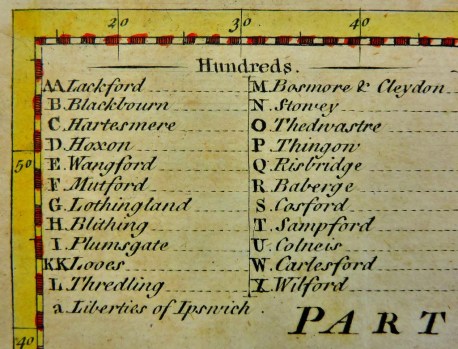 20 30 40
Hundreds.
AA. Lackford
B. Blackbourn
C. Hartesmere
D. Hoxon
E. Wangford
F. Mutford
G. Lothingland
H. Blithing
I. Plumsgate
KK Looes
L. Thredling
a. Liberties of Ipswich
M. Bosmore & Cleydon
N. Stowey
O. Thedwastre
P. Thingow
Q. Risbridge
R. Baberge
S. Cosford
T. Sampford
U. Colneis
W. Carlesford
X. Wilford
50
40
PART